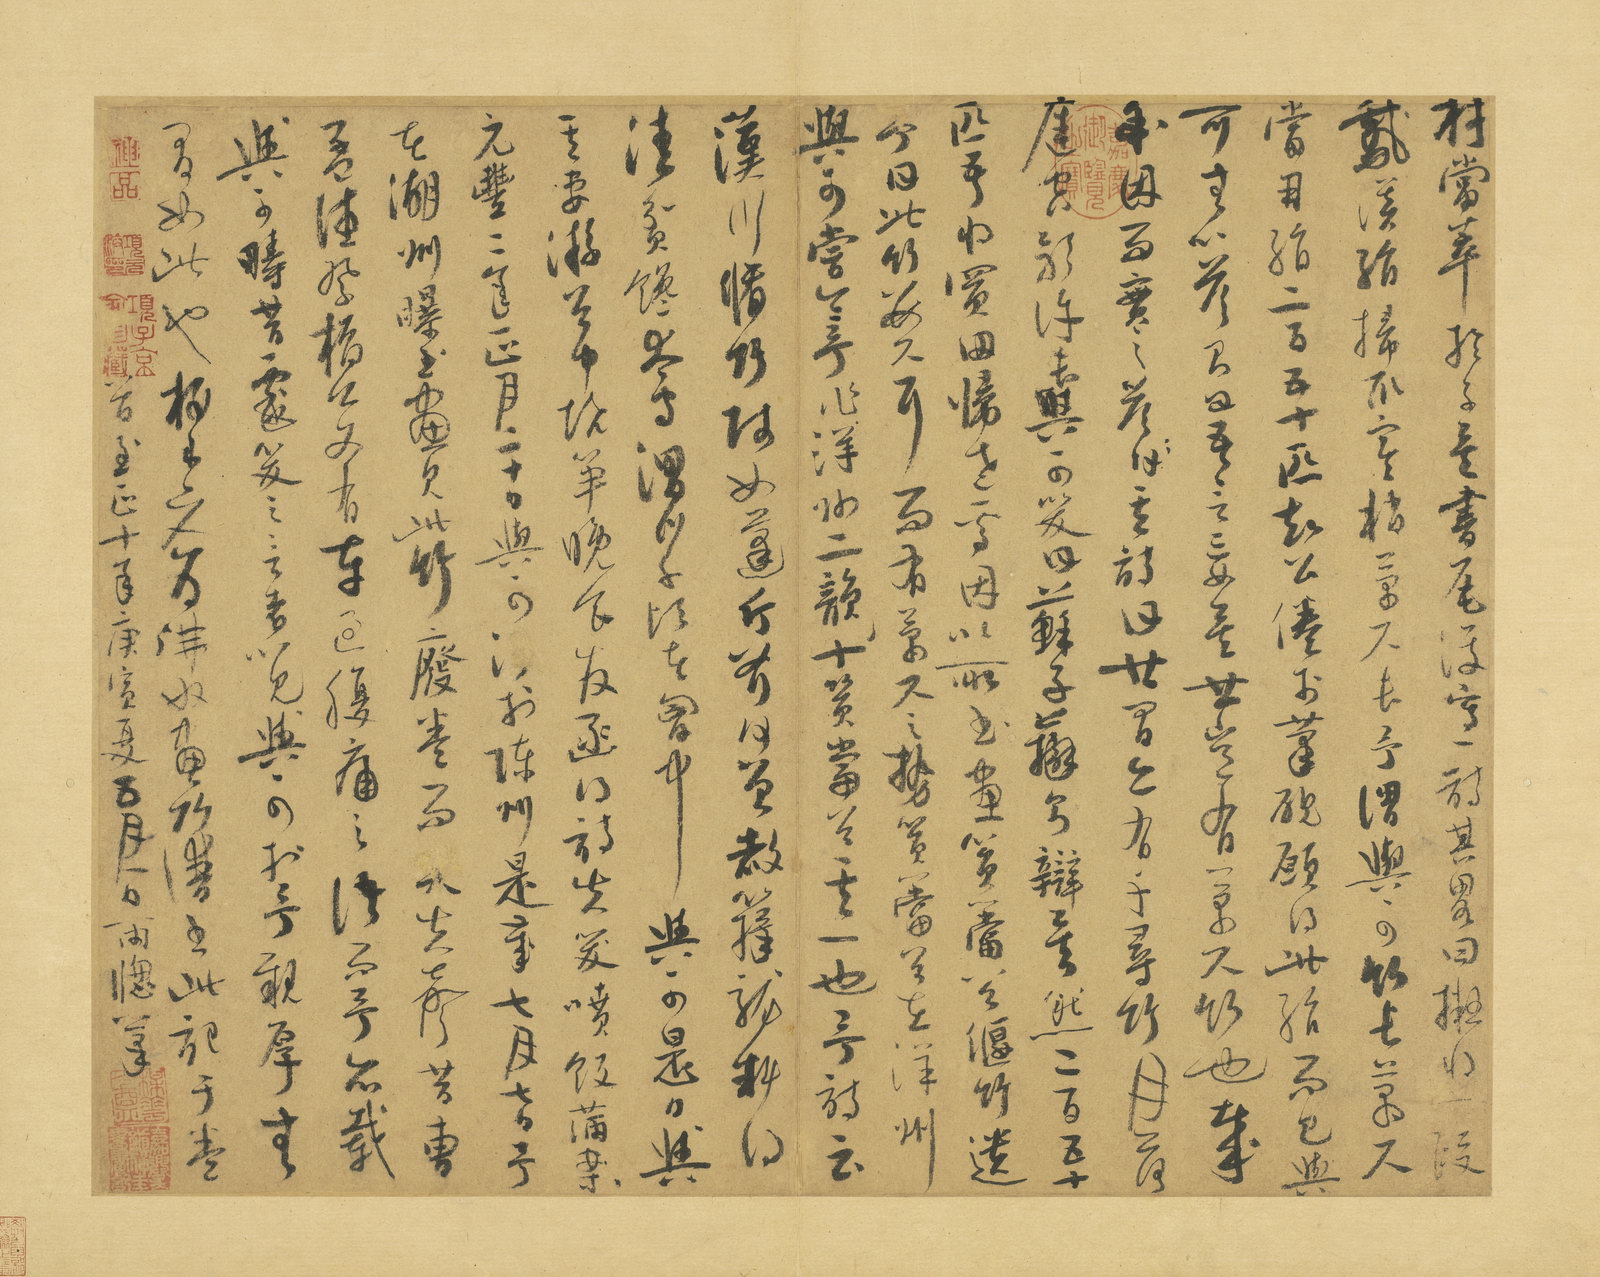 材當萃於子矣書尾復寫一詩其畧曰擬將一段
鵞溪絹掃取寒梢萬尺長予謂與可竹長萬尺
當用絹二百五十匹知公倦於筆硯願得此絹而已與
可無以答則曰吾言妄矣世豈有萬尺竹也哉
余因而實之答其詩曰世間亦有千尋竹月落
庭空影許長與可笑曰蘇子辯則辯矣然二百五十
匹吾將買田歸老焉因以所書畫篔簹谷偃竹遺
予曰此竹數尺耳而有萬尺之勢篔簹谷在洋州
與可嘗令予作洋州二韻十篔簹谷其一也予詩云
漢川脩竹賤如蓬斤斧何曾赦籜龍料得
清貧饞太守渭川千畝在胷中與可是日與
其妻游谷中燒筍晚食發函得詩失笑噴飯滿案
元豐二年正月二十日與可沒於陳州是歲七月七日予
在湖州曝書畫見此竹廢卷而哭失聲昔曹
孟德祭橋公文有車過腹痛之語而予亦載
與可疇昔戲笑之言者以見與可於予親厚無
間如此也梅道人爲佛奴畫竹譜書此記于卷
首至正十年庚寅夏五月一日雨牎筆
嘉慶御覽之寶
神品
項子京家珍藏